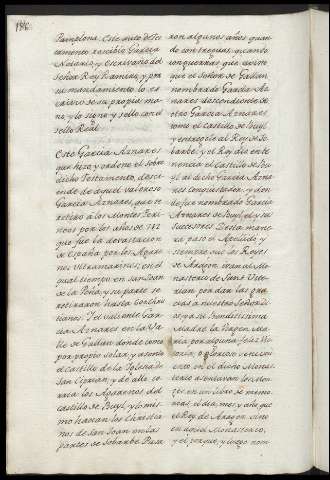 136.
Pamplona. Este auto de Tes-
tamento rescibio Garcia
Notario, y Escrivano del
Señor Rey Ramiro, y por
su mandamiento lo es-
crivio de su propia ma-
no, y lo signo y sello con el
sello Real.
Este Garcia Aznares
que hizo y ordenò el sobre
dicho Testamento, descie-
nde de aquel valeroso
Garcia Aznares, que se
retirò a los Montes Piri-
neos por los años de 712
que fue la devastacion
de España por los Agare-
nos Ultramarinos; en el
qual tiempo en San Juan
de la Peña, y su parte se
retiraron hasta 600 Chris-
tianos. I el valiente Gar-
cia Aznares en la Va-
lle de Guillen donde como
por propio solar, y asiento
el castillo de la Iglesia de
San Ciprian, y de alli co-
rria los Agarenos del
castillo de Buyl, y lo mis-
mo hacian los Christia-
nos de San Juan en las
partes de Sobrarbe. Pasa
ron algunos años quan-
do con treguas, quando
con guerras que avino
que el Señor de Guillen
nombrado Garcia Az-
nares descendiente de
otro Garcia Aznares
tomo el castillo de Buyl
y entregole al Rey de So-
brarbe, y el Rey dio en te-
nencia el castillo de Bu-
yl al dicho Garcia Azna-
res Conquistador, y don-
de fue nombrado Garcia
Aznares de Buyl, el y sus
succesores. Desta mane-
ra pasò en Apellido, y
siempre que los Reyes
de Aragon ivan al Mo-
nasterio de San Victo-
rian por dar las gra-
cias a nuestro Señor Di-
os, y a su Benditissima
Madre la Virgen Ma-
ria por alguna feliz Vic-
toria, o Perdon si no avi-
nto, en el dicho Monas-
terio asentavan los Mon-
ges en un libro de memo-
rias el dia, mes, y año que
el Rey de Aragon vino
en aquel Monasterio,
y el porquè, y luego nom-